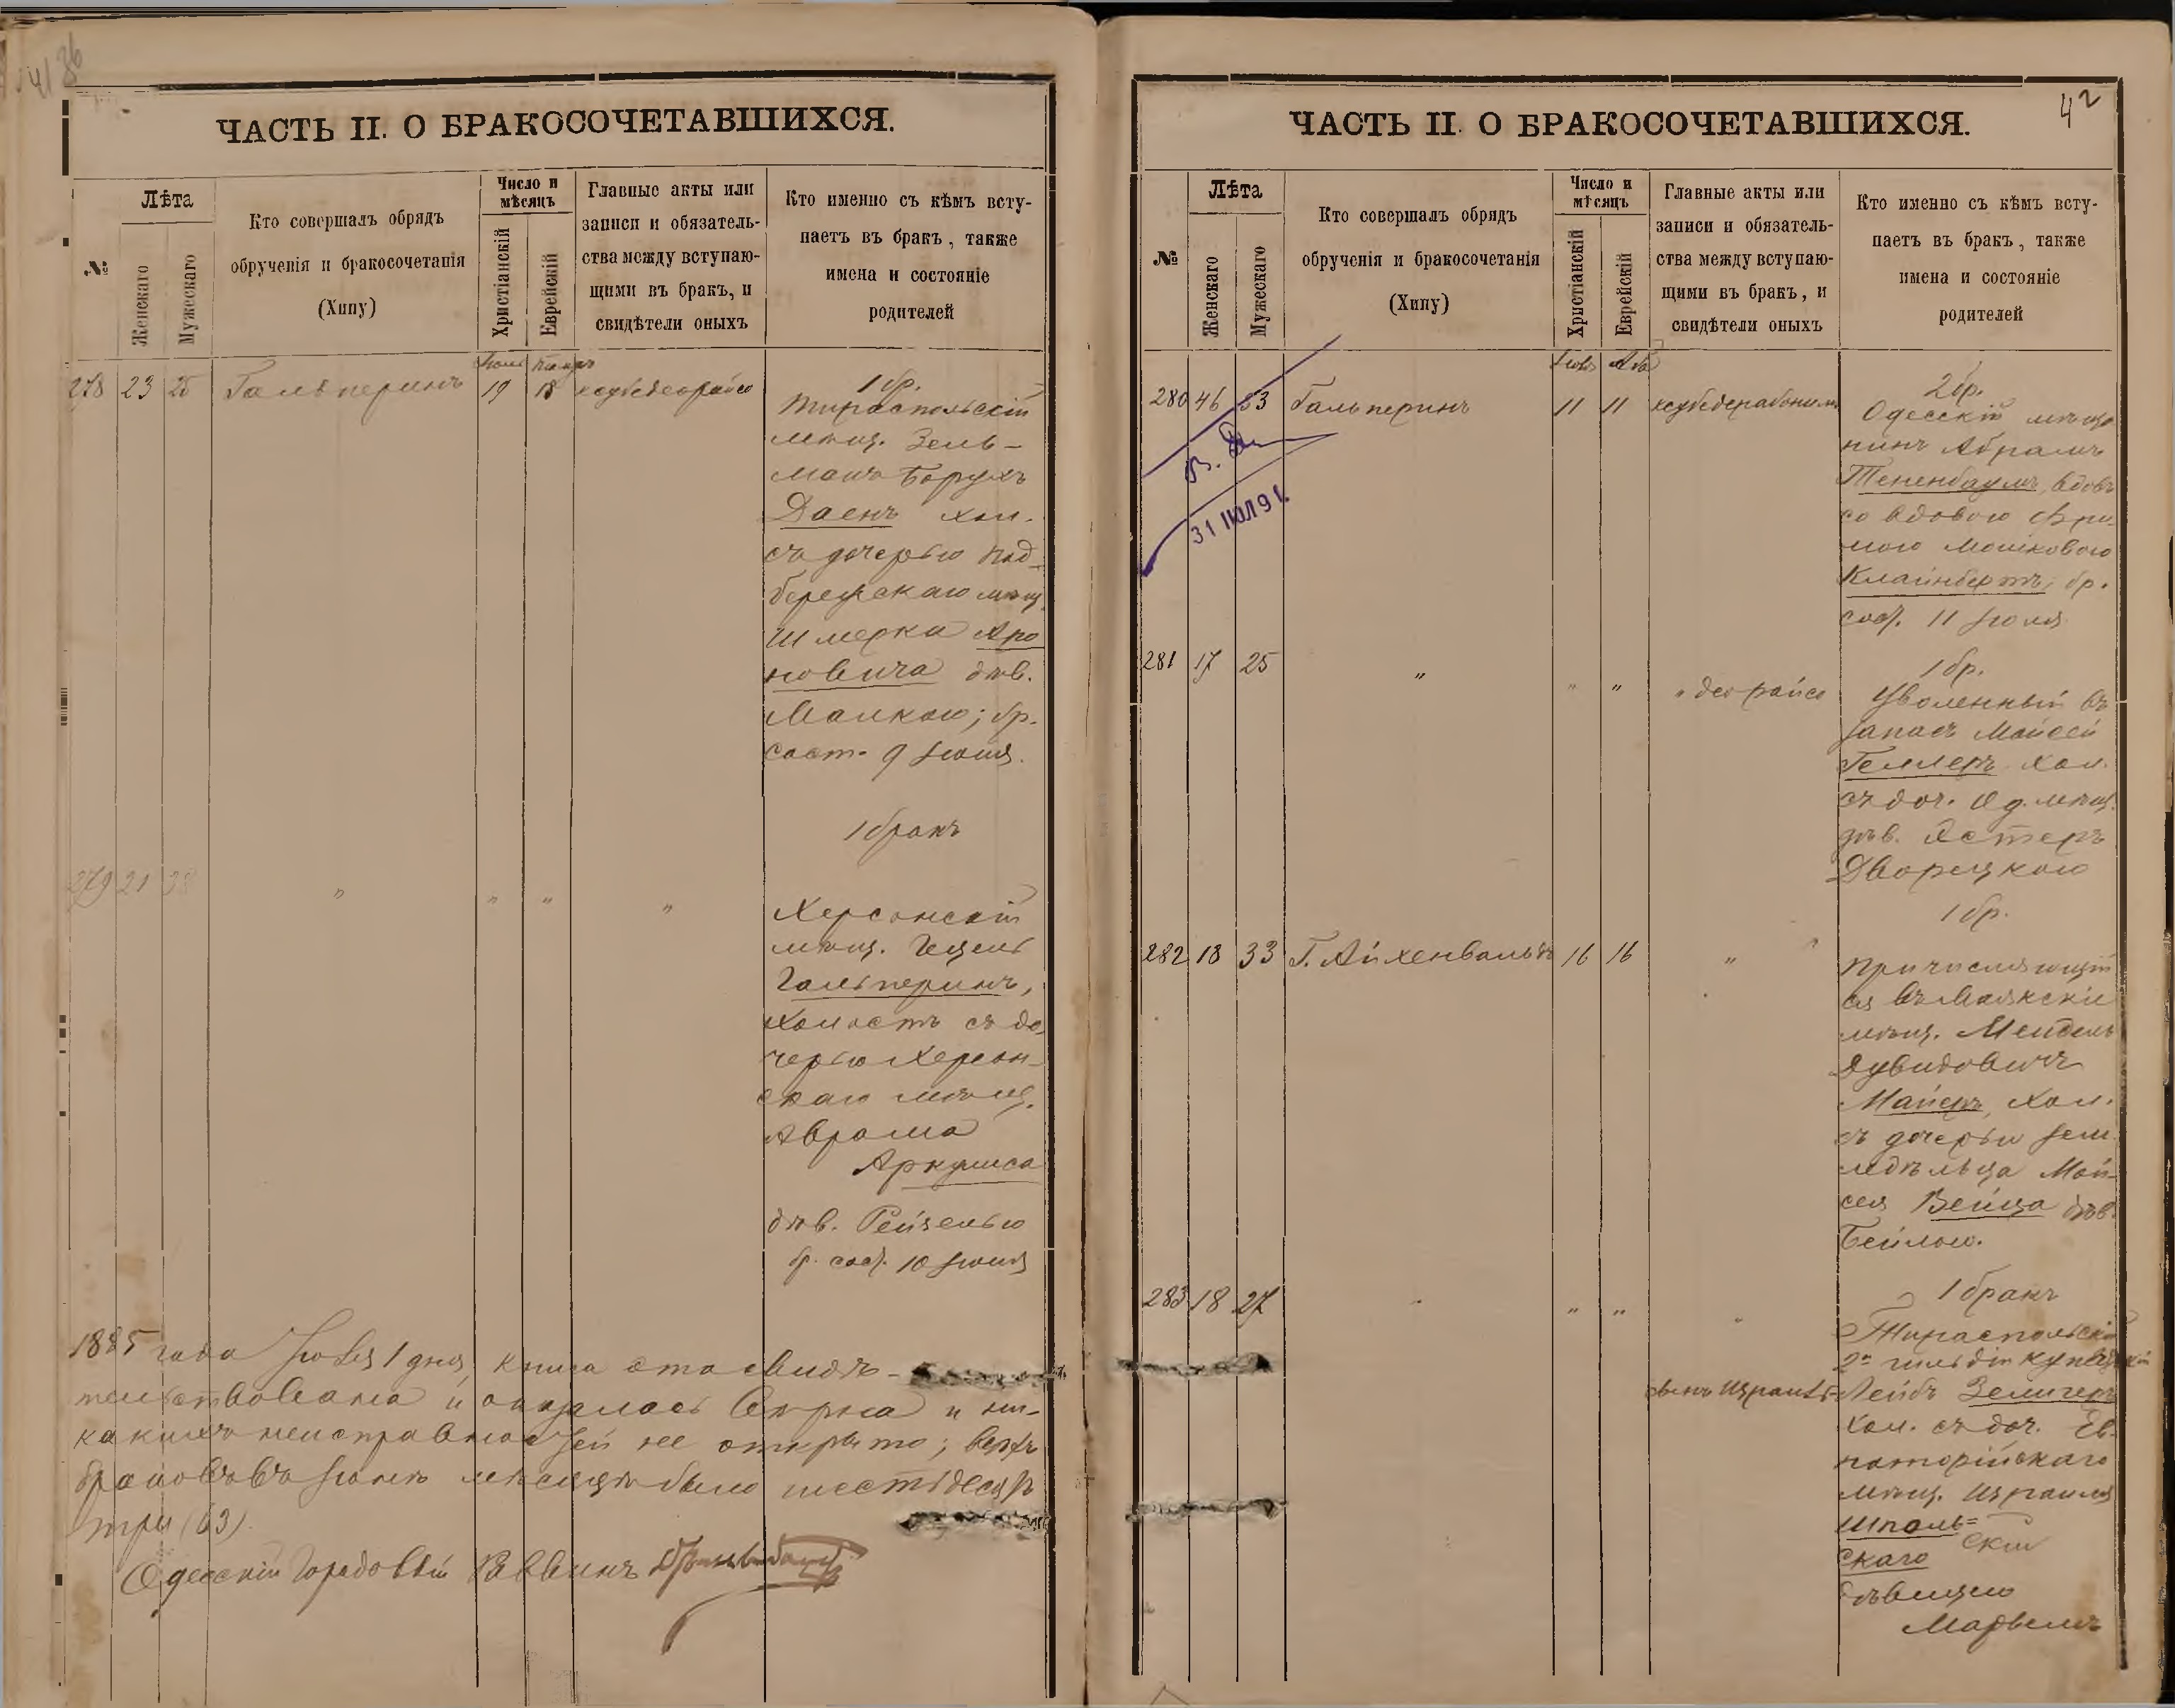 ЧАСТЬ II. О БРАКОСОЧЕТАВШИХСЯ.
№
Лѣта
Женскаго
Мужескаго
Кто совершалъ обрядъ
обрученія и бракосочетанія
(Хипу)
Число и
мѣсяцъ
Христіанскій
Еврейскій
Главные акты или
записи и обязатель-
ства между вступаю-
щими въ бракъ, и
свидѣтели оныхъ
Кто именно съ кѣмъ всту-
паетъ въ бракъ, также
имена и состояніе
родителей
278 23 25 Гальперинъ 19 18
1 бр.
Тираспольскій
мѣщ. Зель-
манъ Борухъ
Даенъ хол.
съ дочерью Под-
бережскаго мѣщ.
Шмерка Аро
новича дѣв.
Малкою; бр.
сост. 9 Іюня.
1 бракъ
279 21 38 " " " "
Херсонскій
мѣщ. Гецель
Гальперинъ,
холостъ съ до-
черью Херсон-
скаго мѣщ.
Аврама
Аркушса
дѣв. Рейзелью
бр. сост. 10 Іюня
1885 года Іюля 1 дня, книга эта свидѣ-
тельствована и оказалась вѣрна и ни-
какихъ неисправностей не открыто; всѣхъ
браковъ въ Іюнѣ мѣсяцѣ было шестьдесятъ
три (63).
Одесскій Городовый Раввинъ
42
ЧАСТЬ II. О БРАКОСОЧЕТАВШИХСЯ.
№
Лѣта
Женскаго
Мужескаго
Кто совершалъ обрядъ
обрученія и бракосочетанія
(Хипу)
Число и
мѣсяцъ
Христіанскій
Еврейскій
Главные акты или
записи и обязатель-
ства между вступаю-
щими въ бракъ, и
свидѣтели оныхъ
Кто именно съ кѣмъ всту-
паетъ въ бракъ, также
имена и состояніе
родителей
Іюль Абъ
280 46 53 Гальперинъ 11 11
31 ИЮЛ 91.
2 бр.
Одесскій мѣща
нинъ Абрамъ
Тененбаумъ, вдовъ
со вдовою Фру-
мою Мошковою
Клайнбертъ, бр.
сост. 11 Іюля
281 17 25 " " " " деорайсо
1 бр.
Уволенный въ
запасъ Мойсей
Геллеръ хол.
съ доч. Од. мѣщ.
дѣв. Эстеръ
Дворецкою
1 бр.
282 18 33 Г. Айхенвальдъ 16 16 "
Причисляющій
ся въ Маякскіе
мѣщ. Мендель
Дувидовичъ
Майеръ, хол.
съ дочерью зем
ледѣльца Мой-
сея Вейца дѣв.
Бейлою.
1 бракъ
283 18 27 " " " "
Тираспольскій
2й гильдіи купеческій
сынъ Израиль-Лейбъ Зелигеръ
хол. съ доч. Ев-
паторійскаго
мѣщ. Израиля
Шполь=
скаго
дѣвицею